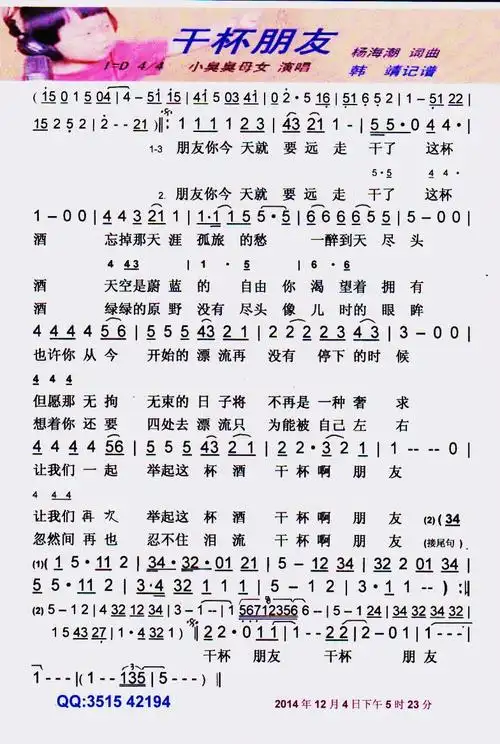 干杯朋友
杨海潮 词曲
1=D 4/4 小臭臭母女 演唱 韩 靖记谱
(15 0 1 5 04 | 4 - 51 15 | 41 5 03 51 | 0 2· 5 16 | 51 6 52 | 1 - 51 22 |
15 2 5 2 | 2 - - 21 )‖: 1 1 1 1 2 3 | 43 21 1 - | 5 5· 0 4 4· |
1-3 朋友你今 天就 要 远 走 干了 这杯
5·5 4 4·
2. 朋友你今 天就 要 远 走 干了 这杯
1 - 0 0 | 4 4 3 21 1 | 1·1 1 5 5·5 | 6 6 6 6 5 5 | 5 - 0 0 |
酒 忘掉那天 涯 孤旅 的愁 一醉到天 尽 头
4 43 | 1 · 5 | 6·6
酒 天空是蔚 蓝 的 自由 你 渴 望着 拥 有
酒 绿绿的原 野 没有 尽头 像 儿 时的 眼 眸
4 4 4 4 5 6 | 5 5 5 43 2 | 2 2 2 3 4 3 | 3 - 0 0 |
也许你 从 今 开始的 漂流再 没有 停下 的时 候
4 4 4
但愿那 无 拘 无束的 日 子将 不再 是一 种 奢 求
想着你 还 要 四处去 漂流只 为能 被自 己 左 右
4 4 4 4 56 | 5 5 5 43 2 | 2 2· 3 2 1 | 1 - - 0 |
让我们 一 起 举起这 杯 酒 干杯 啊 朋 友
4 4 4
让我们 再 次 举起这 杯 酒 干杯 啊 朋 友 (2) (34
忽然间 再 也 忍不住 泪 流 干杯 啊 朋 友 (接尾句)
(1)( 1 5· 11 2 | 34·32·01 21 | 5 - 12 34 | 32 01 2 01 |
5 5· 11 2 | 3·4 32 1 1 1 | 5 - 1 2 | 3·1 1 - - ) :‖
(2) 5 - 1 2 | 4 32 12 34 | 3 - 1 - - | 1 5671235 6 6 - - | 5 - 1 24 | 34 32 34 32 |
1 5 43 27 | 1 - 0 1 ) ‖ 2 2· 0 1 1 | 1 - - 2 2 | 2 - 0 1 | 1 - - - |
干杯 朋友 干杯 朋 友
1 - - - | (1 - - 135 | 5 - - - )‖
QQ:3515 42194
2014 年 12 月 4 日下午 5 时 23 分